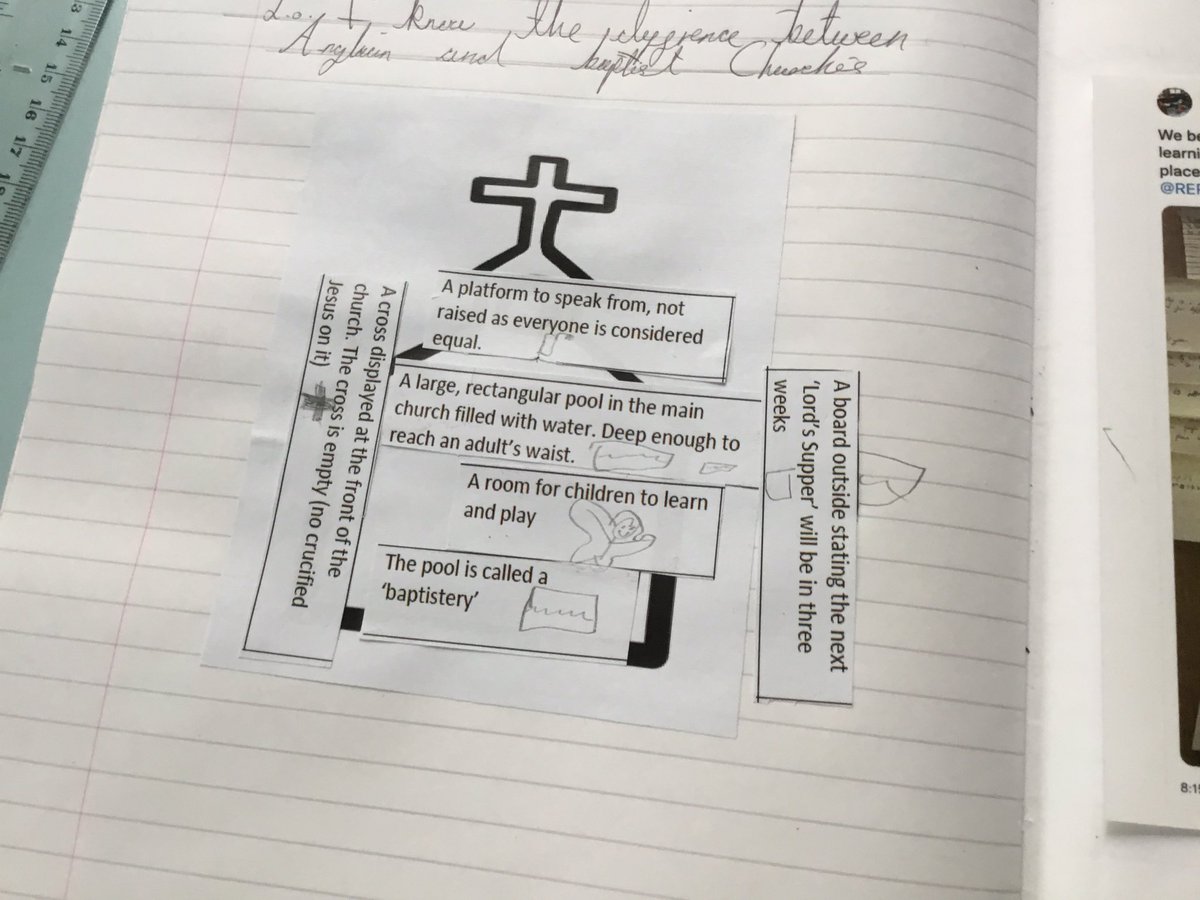 L.o. to know the between
and baptist
A platform to speak from, not
raised as everyone is considered
equal.
A cross displayed at the front of the
church. The cross is empty (no crucified
Jesus on it)
A large, rectangular pool in the main
church filled with water. Deep enough to
reach an adult's waist.
A board outside stating the next
'Lord's Supper' will be in three
weeks
A room for children to learn
and play
The pool is called a
'baptistery'
We be
learni
place
@REF
8:15
13
14
15
16
17